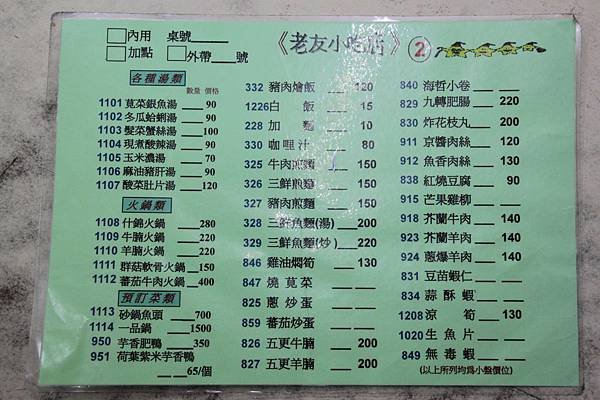 □內用 桌號____
□加點 □外帶___號
《老友小吃店》 ②
各種湯類
數量 價格
1101 莧菜銀魚湯 __ 90
1102 冬瓜蛤蜊湯 __ 90
1103 髮菜蟹絲湯 __100
1104 現煮酸辣湯 __ 90
1105 玉米濃湯 __ 70
1106 麻油豬肝湯 __ 90
1107 酸菜肚片湯 __120
火鍋類
1108 什錦火鍋 ___280
1109 牛腩火鍋 ___220
1110 羊腩火鍋 ___220
1111 群菇軟骨火鍋 __150
1112 蕃茄牛肉火鍋 __400
預訂菜類
1113 砂鍋魚頭 ___700
1114 一品鍋 ___1500
950 芋香肥鴨 ___350
951 荷葉紫米芋香鴨
___65/個
332 豬肉燴飯 ___ 120
1226 白飯 ___ 15
228 加麵 ___ 10
330 咖哩汁 ___ 80
325 牛肉煎麵 ___ 150
326 三鮮煎麵 ___ 150
327 豬肉煎麵 ___ 150
328 三鮮魚麵(湯) ___200
329 三鮮魚麵(炒) ___220
846 雞油燜筍 ___ 130
847 燒莧菜 ___ ___
825 蔥炒蛋 ___ ___
859 蕃茄炒蛋 ___ ___
826 五更牛腩 ___ 200
827 五更羊腩 ___ 200
840 海哲小卷 ___ ___
829 九轉肥腸 ___ 220
830 炸花枝丸 ___ 200
911 京醬肉絲 ___ 120
912 魚香肉絲 ___ 130
838 紅燒豆腐 ___ 90
915 芒果雞柳 ___ ___
918 芥蘭牛肉 ___ 140
923 芥蘭羊肉 ___ 140
924 蔥爆羊肉 ___ 140
831 豆苗蝦仁 ___ ___
834 蒜酥蝦 ___ ___
1208 涼筍 ___ 130
1020 生魚片 ___ ___
849 無毒蝦 ___ ___
(以上所列均為小盤價位)